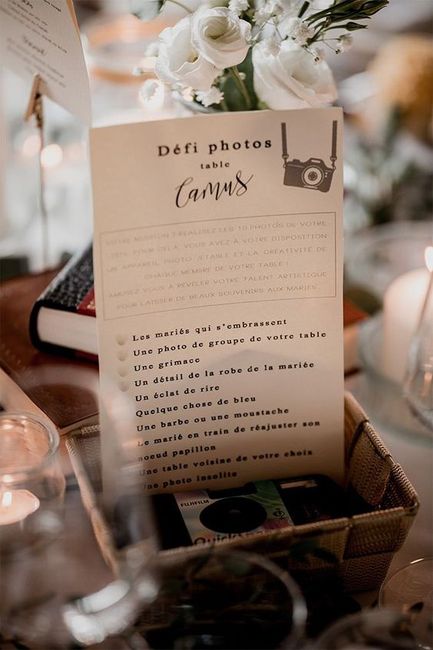 Défi photos
table
Camus
VOTRE MISSION ? RÉALISEZ LES 10 PHOTOS DE VOTRE
POUR CELA, VOUS AVEZ À VOTRE DISPOSITION
UN APPAREIL PHOTO JETABLE ET LA CRÉATIVITÉ DE
CHAQUE MEMBRE DE VOTRE TABLE !
AMUSEZ VOUS À RÉVÉLER VOTRE TALENT ARTISTIQUE
POUR LAISSER DE BEAUX SOUVENIRS AUX MARIÉS
Les mariés qui s'embrassent
Une photo de groupe de votre table
Une grimace
Un détail de la robe de la mariée
Un éclat de rire
Quelque chose de bleu
Une barbe ou une moustache
Le marié en train de réajuster son
noeud papillon
Une table voisine de votre choix
Une photo insolite
FUJIFILM
Quick